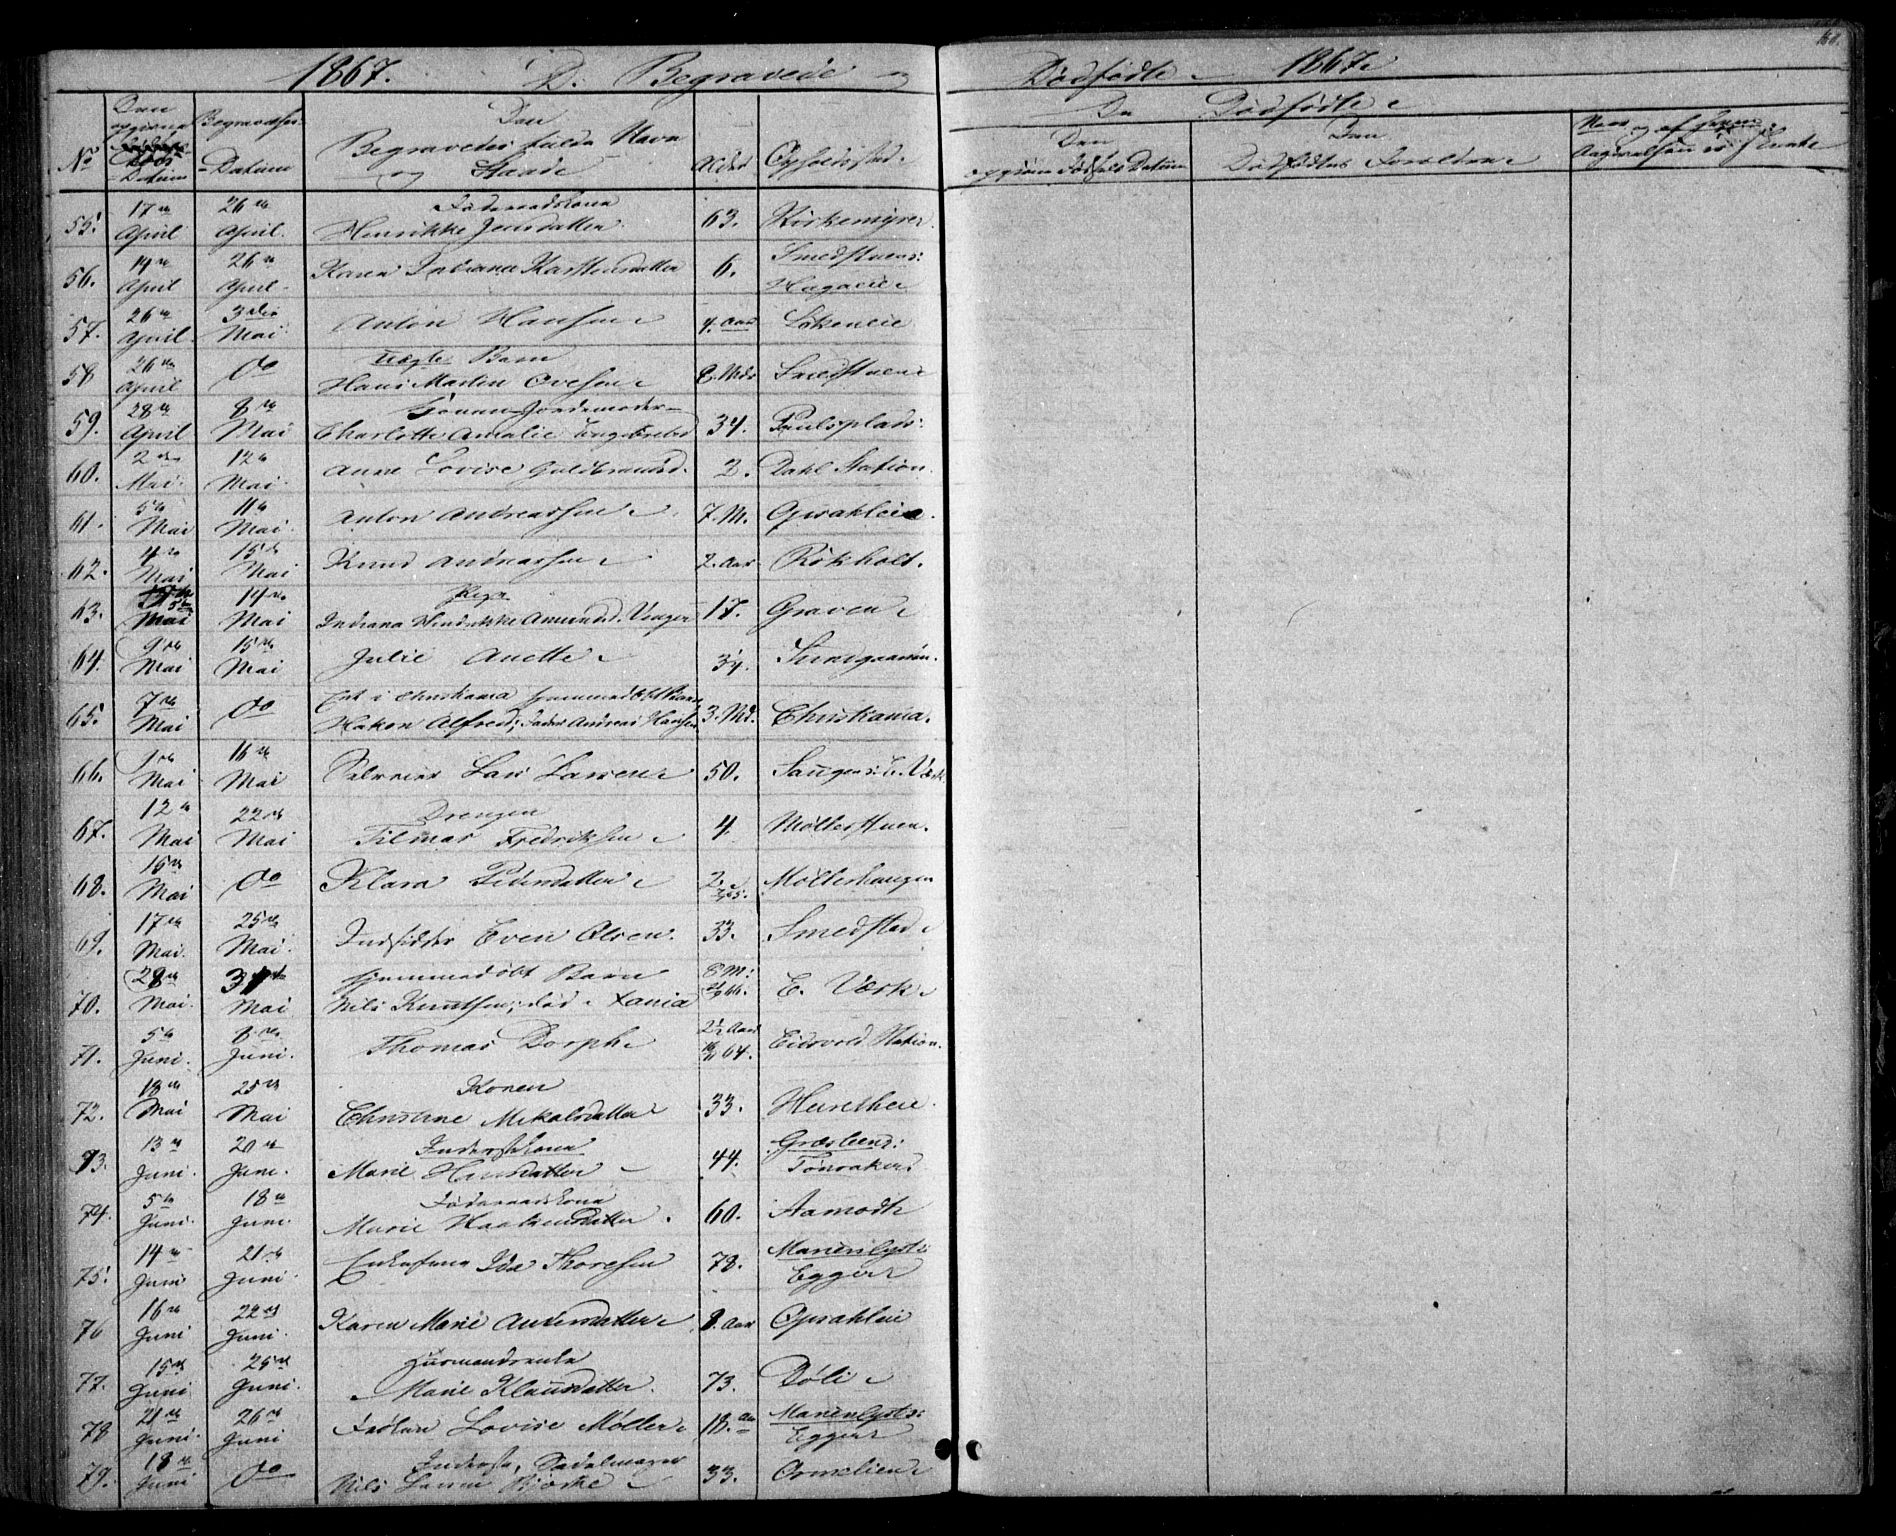 1867. D. Begravede og
No
Den opgivne Døds Datum
Begravelses-Datum
Den Begravedes fulde Navn og Stand
Alder
Opholdssted.
55. 17de April 26de April. Føderaadskone Henrikke Jensdatter 63. Kirkemyre
56. 19de April 26de April Karen Indiana Karstensdatter 6. Smedstuen: Hagaeie
57. 26de April. 3die Mai Anton Hansen 4. Aar
58 26de April Do uægte Barn Hans Martin Ovesen 8 Mdr Smedstuen
59. 28de April 8de Mai Konen Jordemoder Charlotte Amalie Engebretsd 34. Paulsplads
60. 2den Mai. 12te Mai. Anne Lovise Guldbrandsd. 2. Dahl Station.
61. 5te Mai 11te Mai. Anton Andreassen 7. M. Opsahleie
62. 4de Mai 15de Mai Knud Andreassen 2. Aar Rökholt.
63. 5te Mai 14de Mai Pige Indiana Hendrikke Amundsd. 17. Graven
64. 9de Mai 15de Mai Julie Anette 34.
65. 7de Mai Do Et i Christiania hjemmedøbt Barn Hakon Alfred; Fader Andreas Hansen 3. Md. Christiania.
66. 9de Mai 16de Mai Lars Larsen 50.
67. 12te Mai 22de Mai Drengen Tilmar Fredriksen 4. Møllerstuen.
68. 15de Mai Do Klara Pedersdatter 2. Møllerhaugen
69. 17de Mai. 25de Mai. Indsidder Even Olsen. 33. Smedstad
70. 28de Mai. 31te Mai hjemmedøbt Barn Nils Knudsen; død i Xania 8 M: E. Værk
71. 5te Juni. 8de Juni. Thomas Dorph 2½ Aar 64. Eidsvold Station.
72. 18de Mai 25de Mai Konen Christine Mikalsdatter 33.
73. 13de Juni. 20de Juni. Inderstkone Marie Hansdatter 44.
74. 5te Juni. 18de Juni. Føderaadskone Marie Haakensdatter. 60. Aamodt
75. 14de Juni 21de Juni. Enkefrue Ida Thoresen 78. Marienlyst: Egger
76 16de Juni 22de Juni. Karen Marie Andersdatter 8. Aar Opsahleie
77. 15de Juni 25de Juni. Husmandsenke Marie Klausdatter. 73. Döli
78 21de Juni. 26de Juni Frøken Lovise Møller 18. Aar Marienlyst: Egger
79. 18de Juni Do Inderst, Sadelmager Nils Larsen Bjørke 33.
Dødfødte 1867
168.
De Dødfødte
Den opgivne Fødsels Datum
Den Dødfødtes Forældre